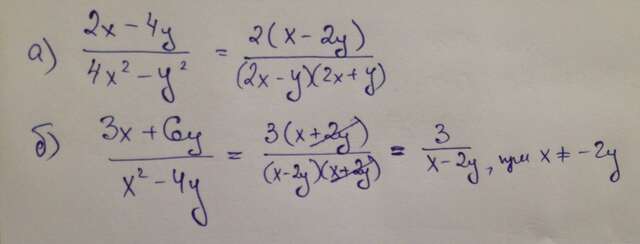 а) (2x - 4y)/(4x² - y²) = 2(x - 2y)/((2x - y)(2x + y))
б) (3x + 6y)/(x² - 4y) = 3(x + 2y)/((x - 2y)(x + 2y)) = 3/(x - 2y), при x ≠ -2y